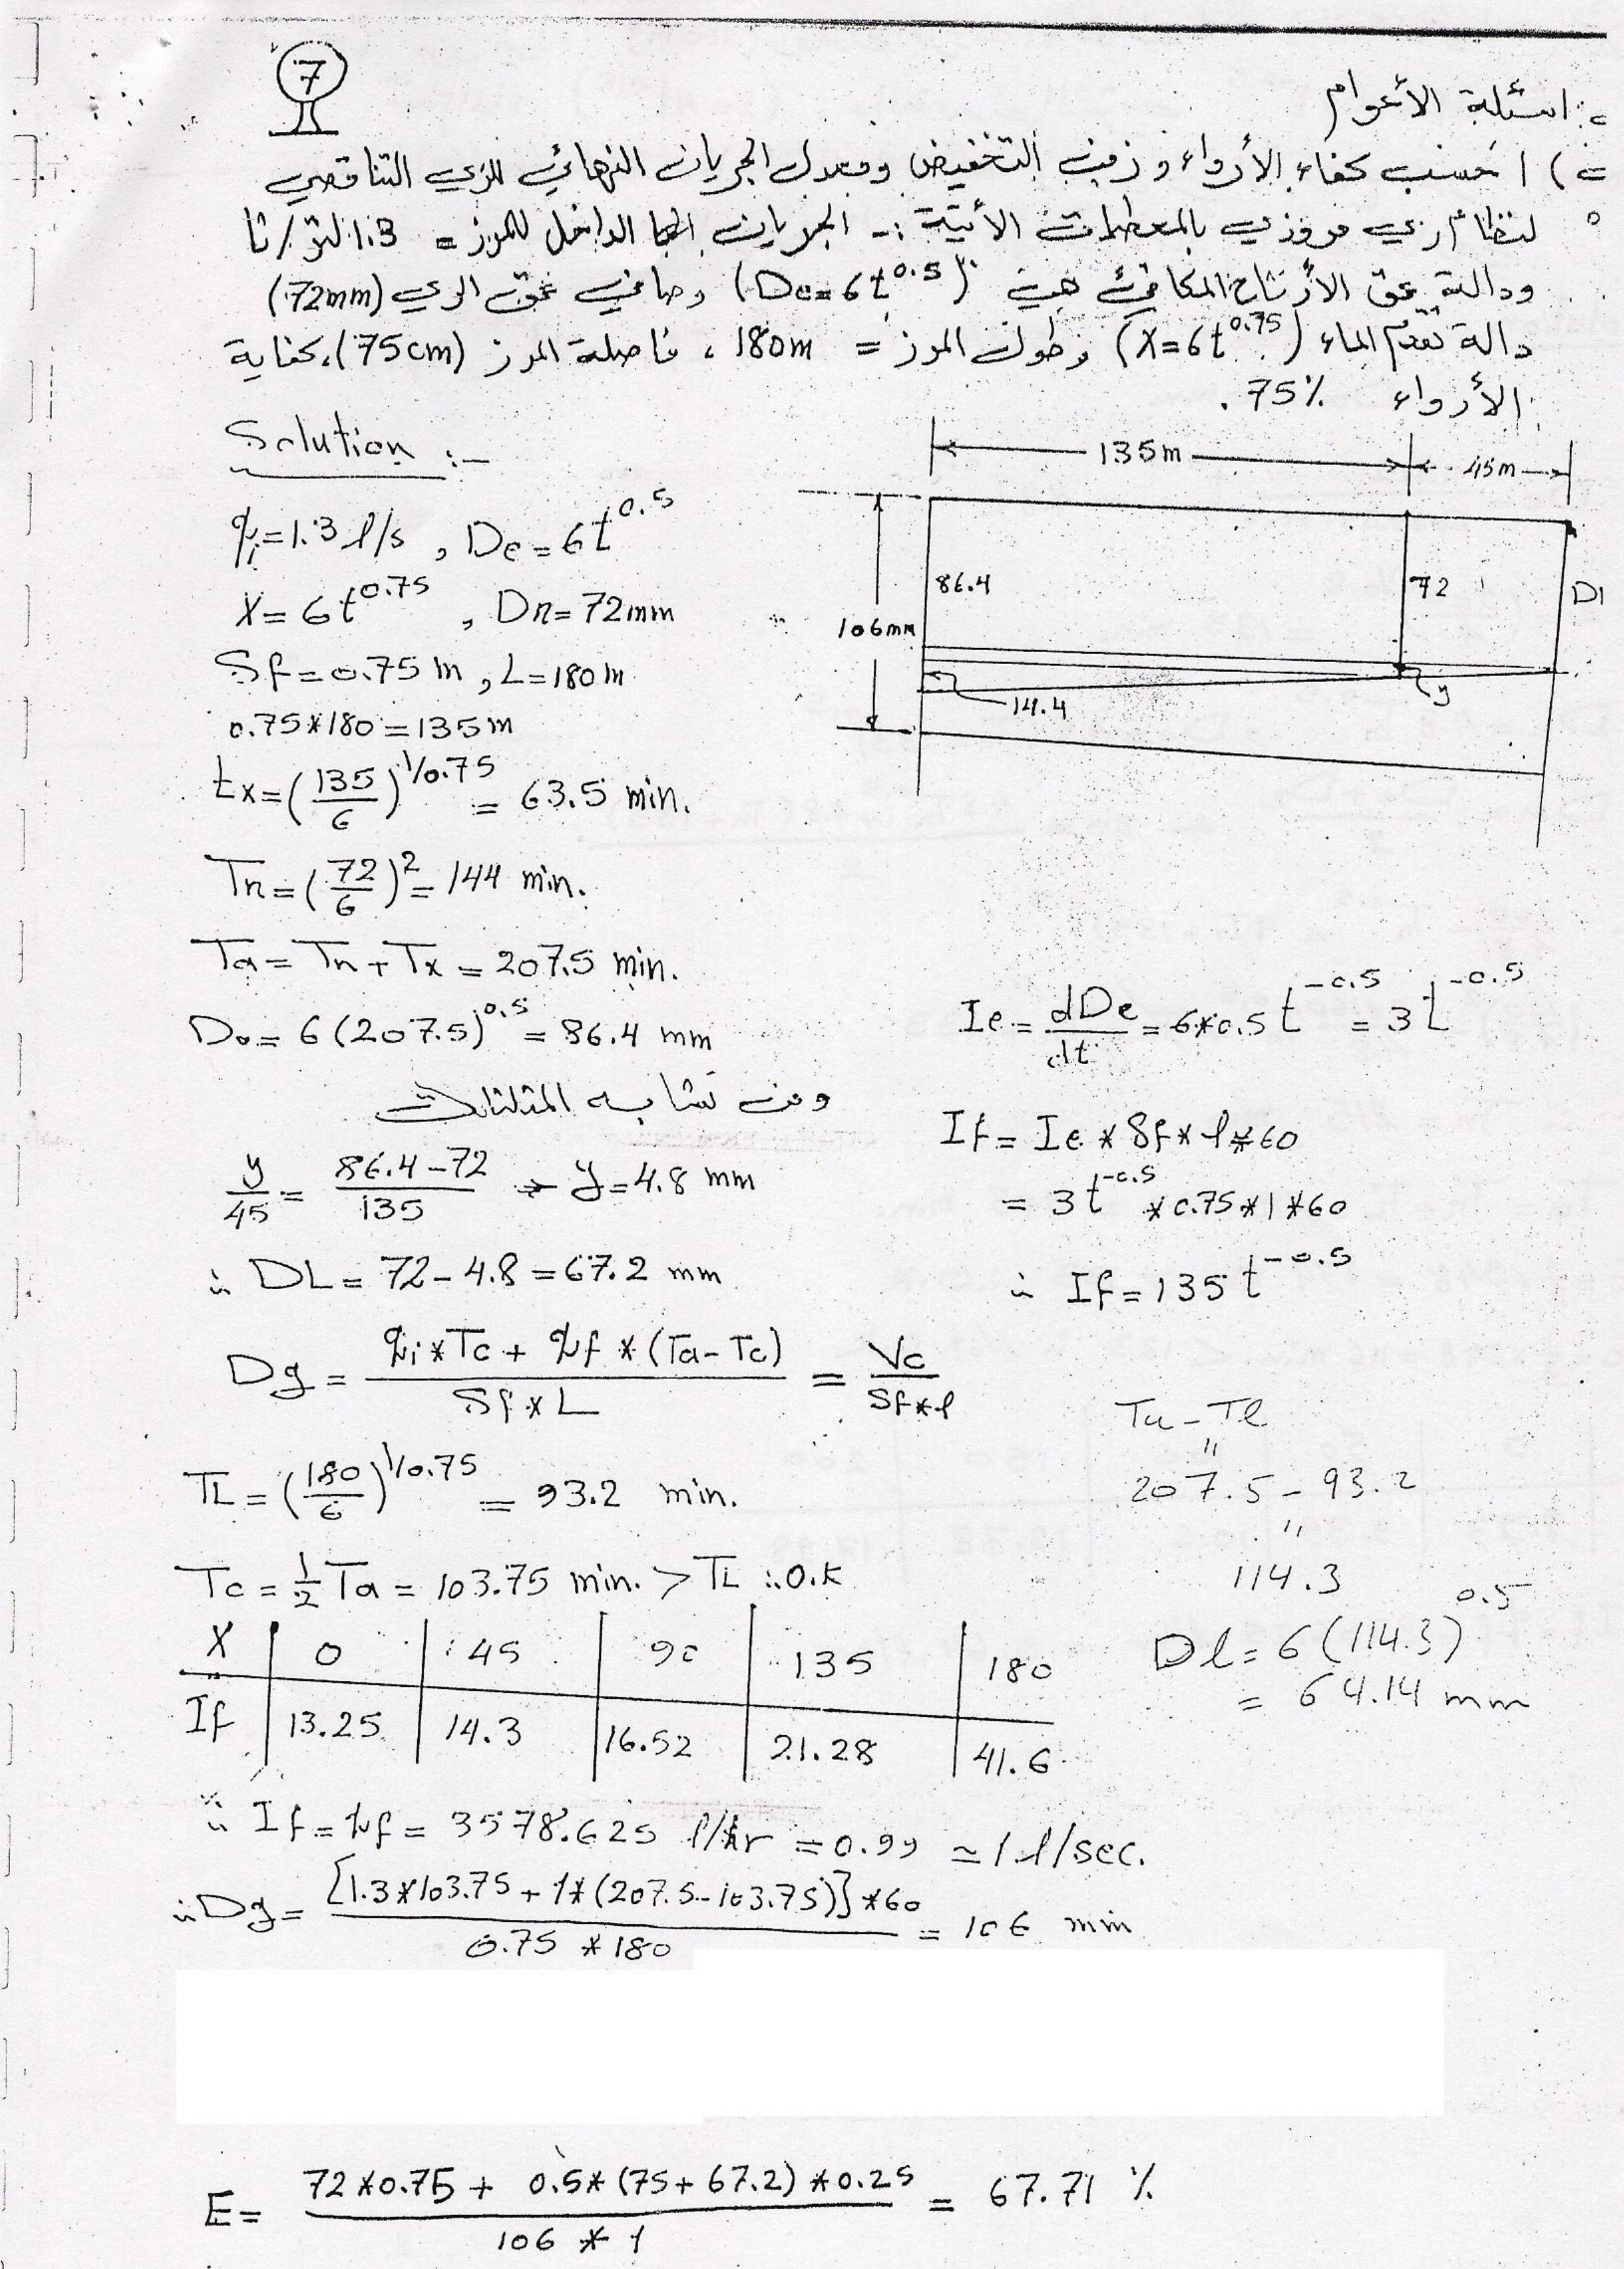 7
اسئلة الأعوام
احسب كفاء الأرواء و زمن التخفيض ومعدل الجريان النهائي للري التناقصي
لنظام ري مروزي بالمعطيات الأتية :- الجريان الداخل للمرز = 1.3 لتر/ثا
ودالة عمق الأرتشاح المكافئ هي (De=6t^0.5) وصافي عمق الري (72mm)
دالة تقدم الماء (X=6t^0.75) وطول المرز = 180m ، فاصلة المرز (75cm)، كفاية
الأرواء 75% .
Solution :-
135m 45m
qi=1.3 l/s , De=6t^0.5
86.4 72 Dl
X=6t^0.75 , Dn=72mm
106mm
Sf=0.75m , L=180m
y
14.4
0.75*180=135m
tx=(135/6)^1/0.75 = 63.5 min.
Tn=(72/6)^2=144 min.
Ta=Tn+Tx=207.5 min.
Do=6(207.5)^0.5=86.4 mm
Ie=dDe/dt=6*0.5t^-0.5=3t^-0.5
ومن تشابه المثلثات
If=Ie*Sf*l*60
y/45=(86.4-72)/135 → y=4.8 mm
=3t^-0.5*0.75*1*60
∴ DL=72-4.8=67.2 mm
∴ If=135t^-0.5
Dg=(qi*Tc+qf*(Ta-Tc))/(Sf*L)=Vc/(Sf*l)
Ta-Tl
"
TL=(180/6)^1/0.75 = 93.2 min.
207.5-93.2
"
Tc=1/2 Ta=103.75 min.>TL ∴O.K
114.3
X 0 45 90 135 180
Dl=6(114.3)^0.5
= 64.14 mm
If 13.25 14.3 16.52 21.28 41.6
∴ If=qf=3578.625 l/hr=0.99≃1 l/sec.
∴Dg=([1.3*103.75+1*(207.5-103.75)]*60)/(0.75*180)=106 mm
E=(72*0.75+0.5*(75+67.2)*0.25)/(106*1)=67.71 %